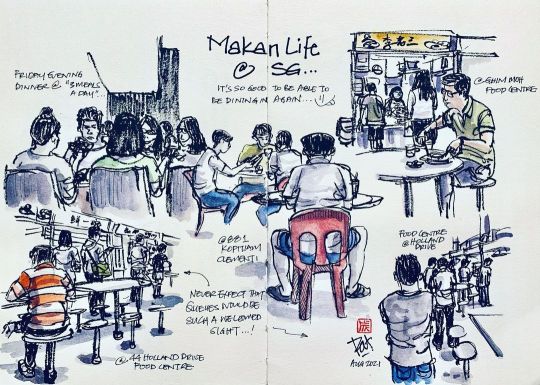 Makan Life
@ SG...
IT'S SO GOOD TO BE ABLE TO
BE DINING IN AGAIN...
FRIDAY EVENING
DINNER @ "3 MEALS
A DAY"
李老三
@ GHIM MOH
FOOD CENTRE
@ 881
KOPITIAM
CLEMENTI
FOOD CENTRE
@ HOLLAND
DRIVE
NEVER EXPECT THAT
QUEUES WOULD BE
SUCH A WELCOMED
SIGHT...!
@ 44 HOLLAND DRIVE
FOOD CENTRE
AUG 2021